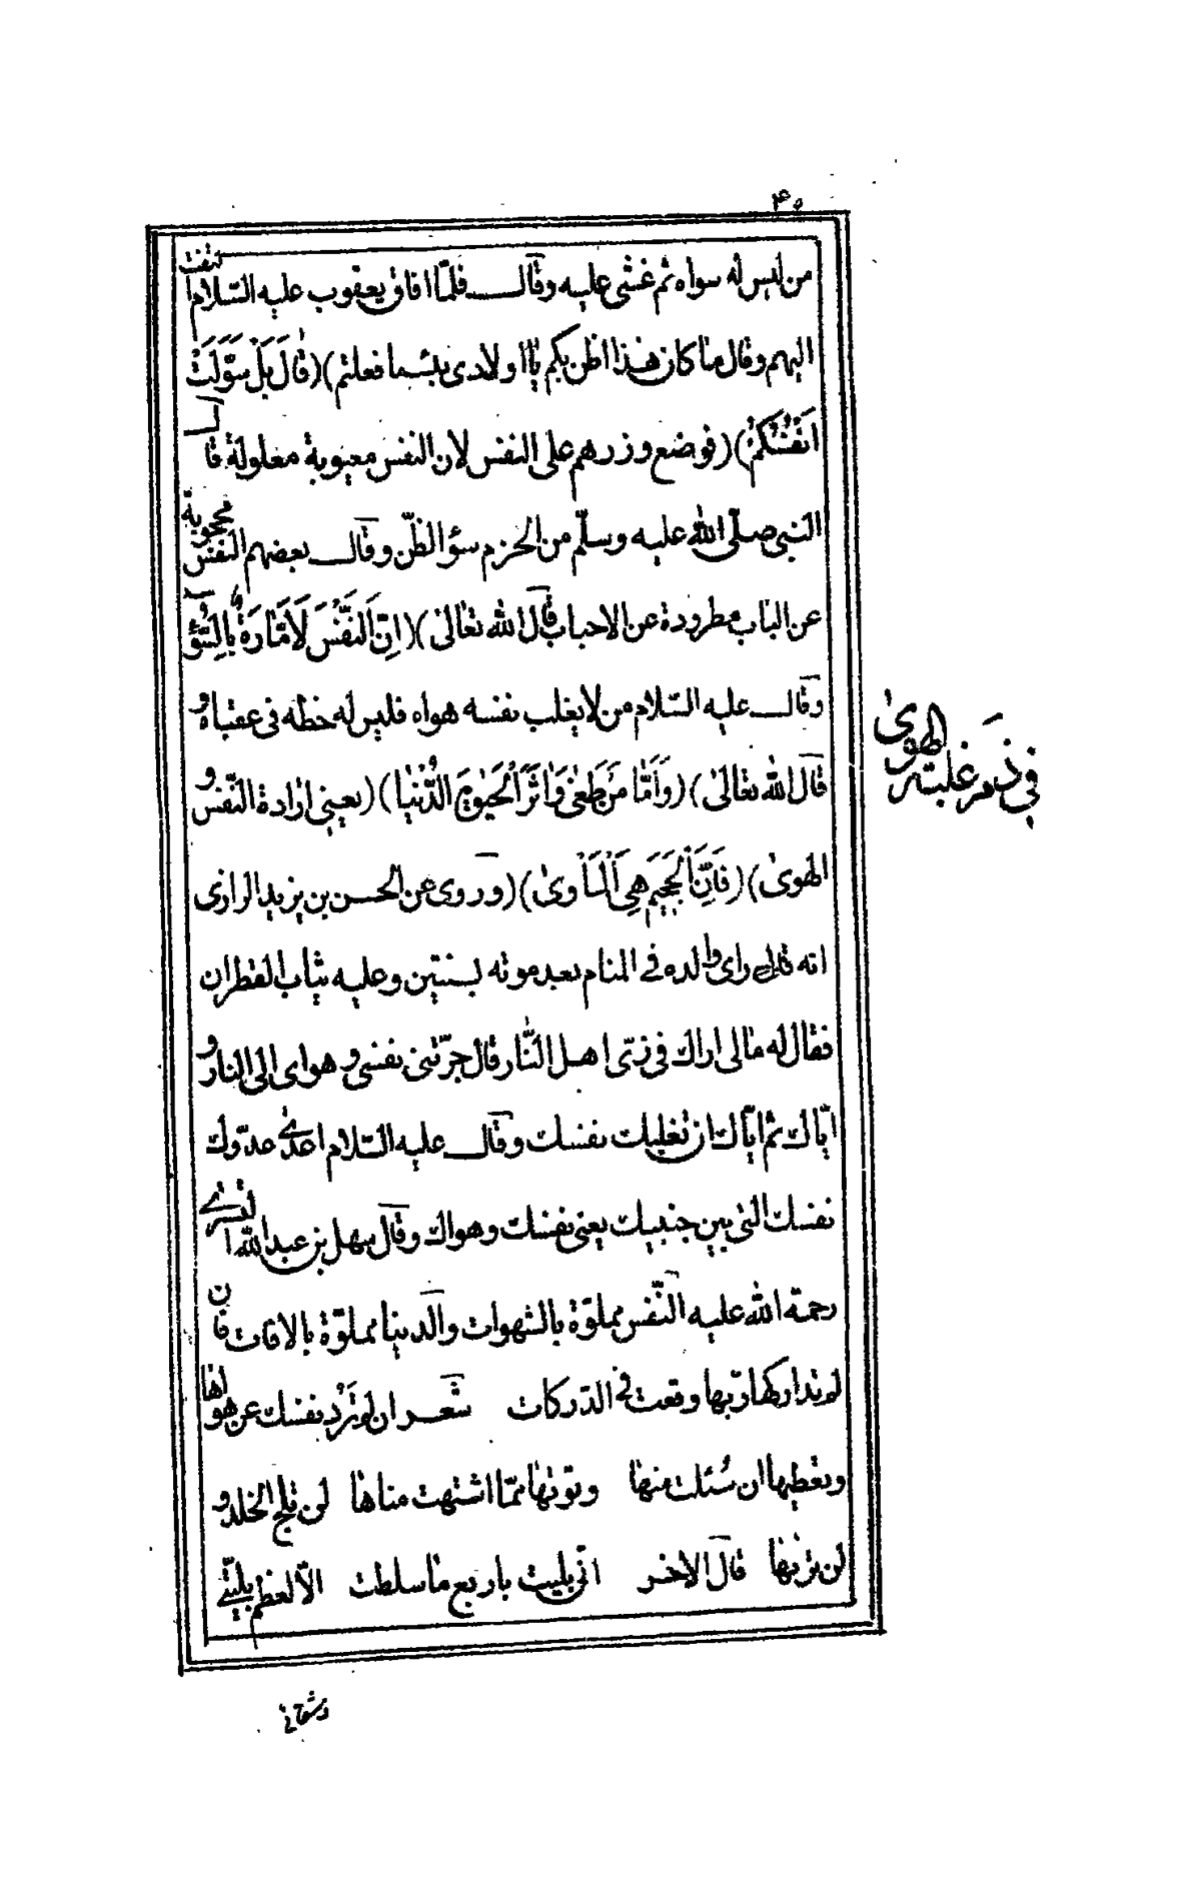 ۴۰
من ليس له سواه ثم غشى عليه وقال فلمّا افاق يعقوب عليه السّلام التفت
اليهم وقال ما كان هذا اظن بكم يا اولادى بئسما فعلتم )( قَالَ بَلْ سَوَّلَتْ
اَنْفُسُكُمْ )( فوضع وزرهم على النفس لان النفس معيوبة معلولة قال
النبى صلّى الله عليه وسلّم من الحزم سؤ الظّن وقال بعضهم النفس محجوبة
عن الباب مطرودة عن الاحباب قال الله تعالى )( اِنَّ النَّفْسَ لَاَمَّارَةٌ بِالسُّوْٓءِ
وقال عليه السّلام من لا يغلب نفسه هواه فليس له حظه فى عقباه و
قال الله تعالىٰ )( وَاَمَّا مَنْ طَغىٰ وَاٰثَرَ الْحَيٰوةَ الدُّنْيَا )( يعنى ارادة النّفس و
الهوىٰ )( فَاِنَّ الْجَحِيْمَ هِىَ الْمَأْوىٰ )( وروى عن الحسن بن يزيد الرازى
انه قال راى والده فى المنام بعد موته بسنتين وعليه ثياب القطران
فقال له مالى اراك فى زىّ اهل النّار قال جرّتنى نفسى و هواى الى النار و
ايّاك ثم ايّاك ان تغلبك نفسك وقال عليه السّلام اعدىٰ عدوّك
نفسك التى بين جنبيك يعنى نفسك وهواك وقال سهل بن عبد الله التسترى
رحمة الله عليه النّفس مملوّة بالشهوات والدنيا مملوّة بالافات فان
لم تداركها ربّها وقعت فى الدّركات شعر ان لم تَرُدْ نفسك عن هواها
وتعطيها ان سُئلت منها وتوتها ممّا اشتهت مناها لن تلج الخلد و
لن تريها قال الاخر انّى بليت باربع ما سلطت الّا لعظم بليّتى
فى ذمر غلبته الهوىٰ
وشقائى